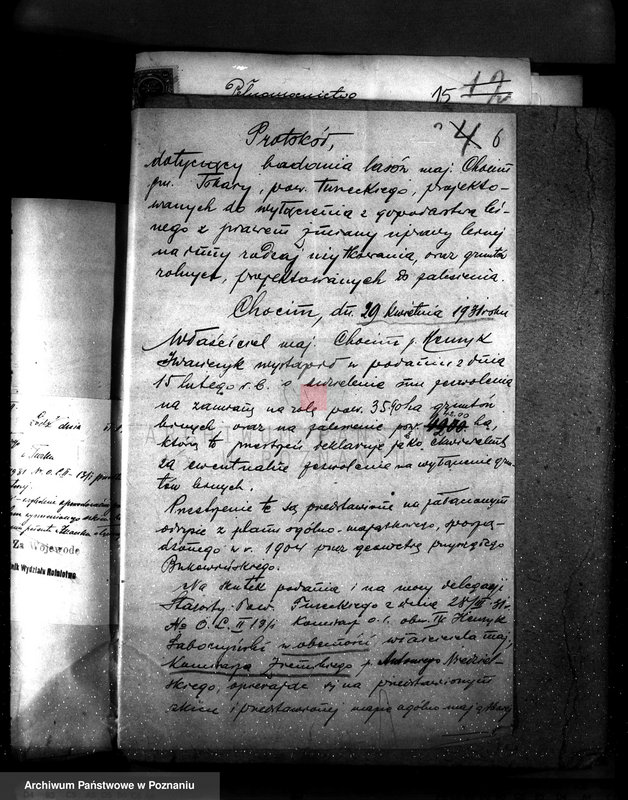 Pełnomocnictwo 15 12
4 6
Protokół,
dotyczący badania lasów maj. Chocim
gm. Tokary, pow. tureckiego, projekto-
wanych do wyłączenia z gospodarstwa leś-
nego z prawem zmiany uprawy leśnej
na inny rodzaj użytkowania, oraz gruntów
rolnych, projektowanych do zalesienia.
Chocim, dn. 29 kwietnia 1931 roku
Właściciel maj. Chocim p. Henryk
Iwańczyk wystąpił w podaniu z dnia
15 lutego r.b. o udzielenie mu zezwolenia
na zamianę na rolę pow. 35.90 ha gruntów
leśnych, oraz na zalesienie pow. 42.00 ha,
którą to przestrzeń deklaruje jako ekwiwalent
za ewentualne zezwolenie na wyłączenie grun-
tów leśnych.
Przestrzenie te są przedstawione na załączonym
odrysie z planu ogólno-majątkowego, sporzą-
dzonego w r. 1904 przez geometrę przysięgłego
Bukowińskiego.
Na skutek podania i na mocy delegacji
Starosty Pow. Tureckiego z dnia 28/III 31 r.
No O.L. II 13/1 Komisarz o.l. obw. IX Henryk
w obecności właściciela maj,
Komisarza Ziemskiego p. Antoniego
skiego, opierając się na przedstawionym
szkicu i przedstawionej mapie ogólno majątkowej
Łódź dnia
z Turku
Za Wojewodę
nik Wydziału Rolnictwa
Archiwum Państwowe w Poznaniu